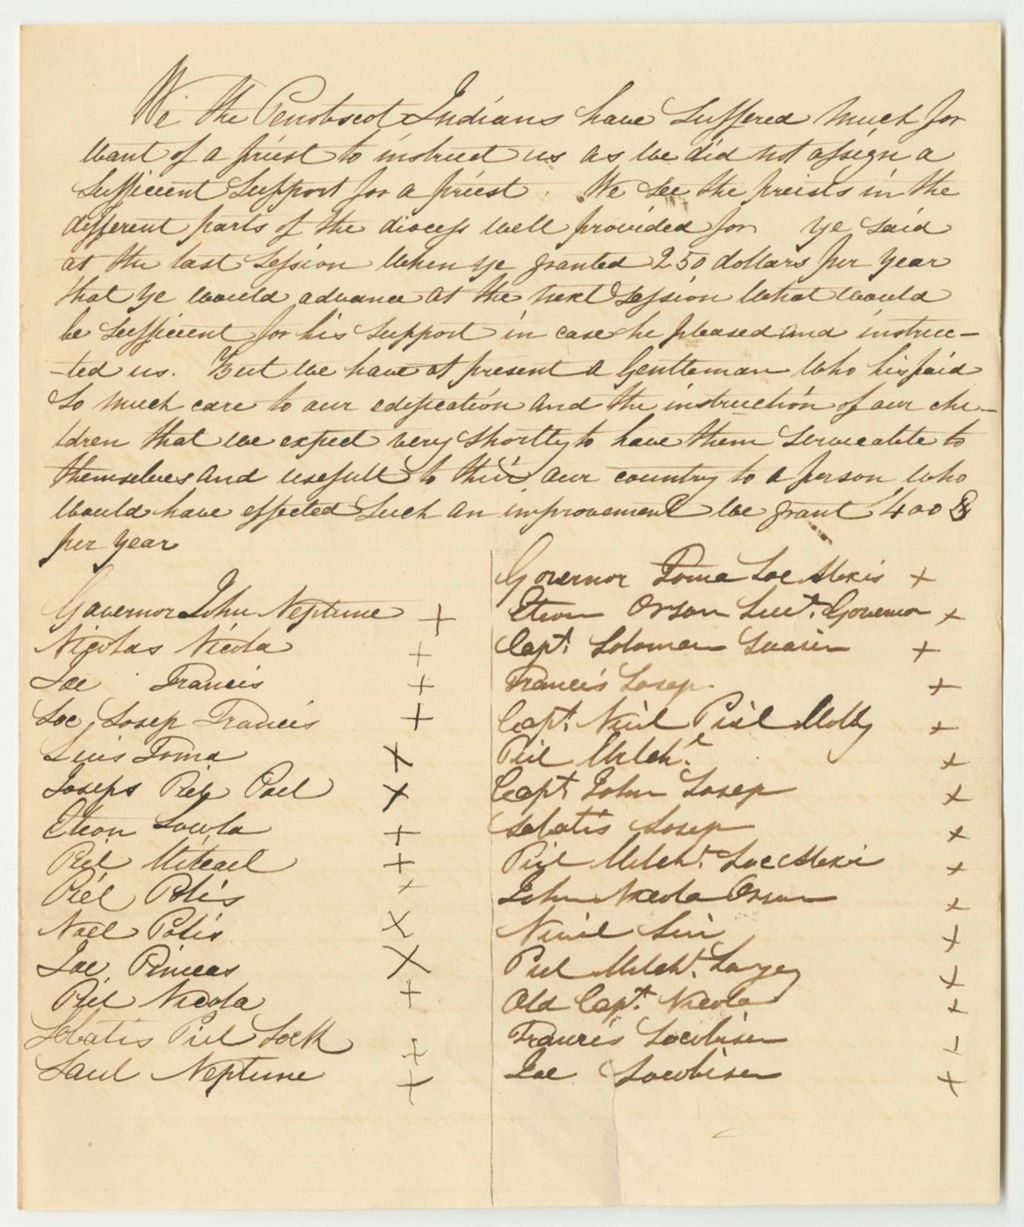 We the Penobscot Indians have suffered much for
want of a priest to instruct us as we did not assign a
sufficient support for a priest. We see the preists in the
different parts of the diocess well provided for ye said
at the last session when ye granted 250 dollars per year
that ye would advance at the next session what would
be sufficient for his support in case he pleased and instruc-
-ted us. But we have at present a Gentleman who his paid
so much care to our edification and the instruction of our chi-
ldren that we expect very shortly to have them serviceable to
themselves and usefull to our country to a person who
would have effected such an improvement we grant 400 $
per year
Governor John Neptune +
Nicolas Nicola +
Joe Francis +
Soc Josep Francis +
Luis Toma X
Joseps Piel Pael X
Etion Sowla +
Piel Mitcael +
Piel Polis +
Nael Polis X
Joe Pineas X
Piel Nicola +
Sebatis Piel Sock +
Saul Neptune +
Governor Toma Soc Alexis +
Etion Orson Lieut. Governor +
Capt. Solomon +
Francis Josep. +
Capt. Piel Molly +
Piel Milchl. +
Capt John Josep +
Sebatis Josep +
Piel Milcht. Soc Alexi +
John Nicola Orson +
+
Piel Milcht. +
Old Capt. Nicola +
Francis Socobisen +
Joe Socobisen +